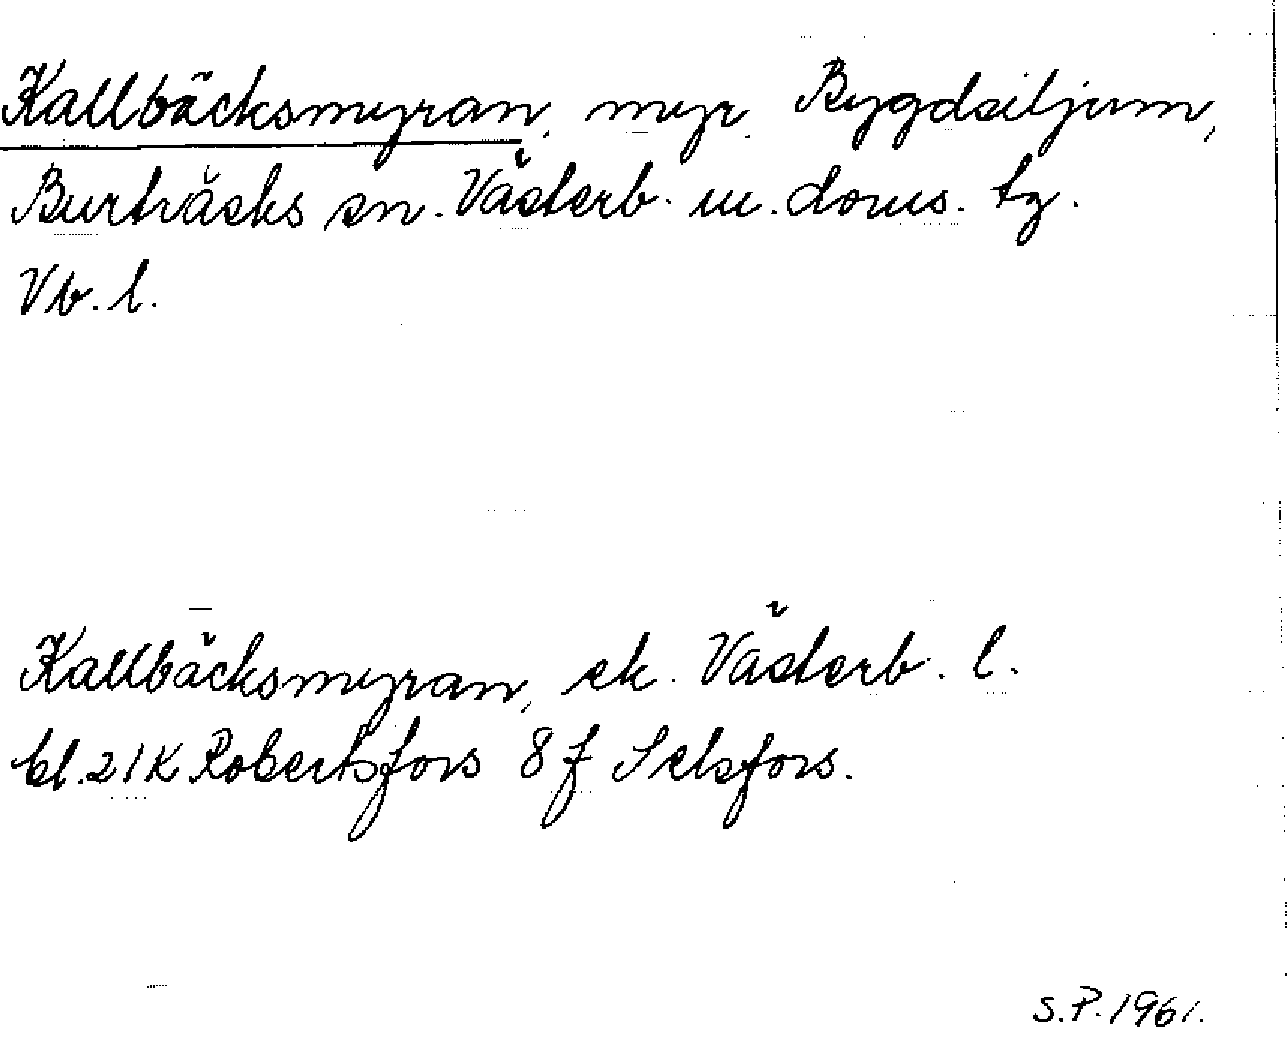 Kallbäcksmyran, myr, Bygdsiljum,
Burträsks sn. Västerb. m. doms. tg.
Vb. l.
Kallbäcksmyran, ek. Västerb. l.
bl. 21K Robertsfors 8f Selsfors.
S.P. 1961.